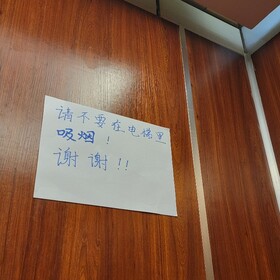 请不要在电梯里
吸烟！
谢谢！！